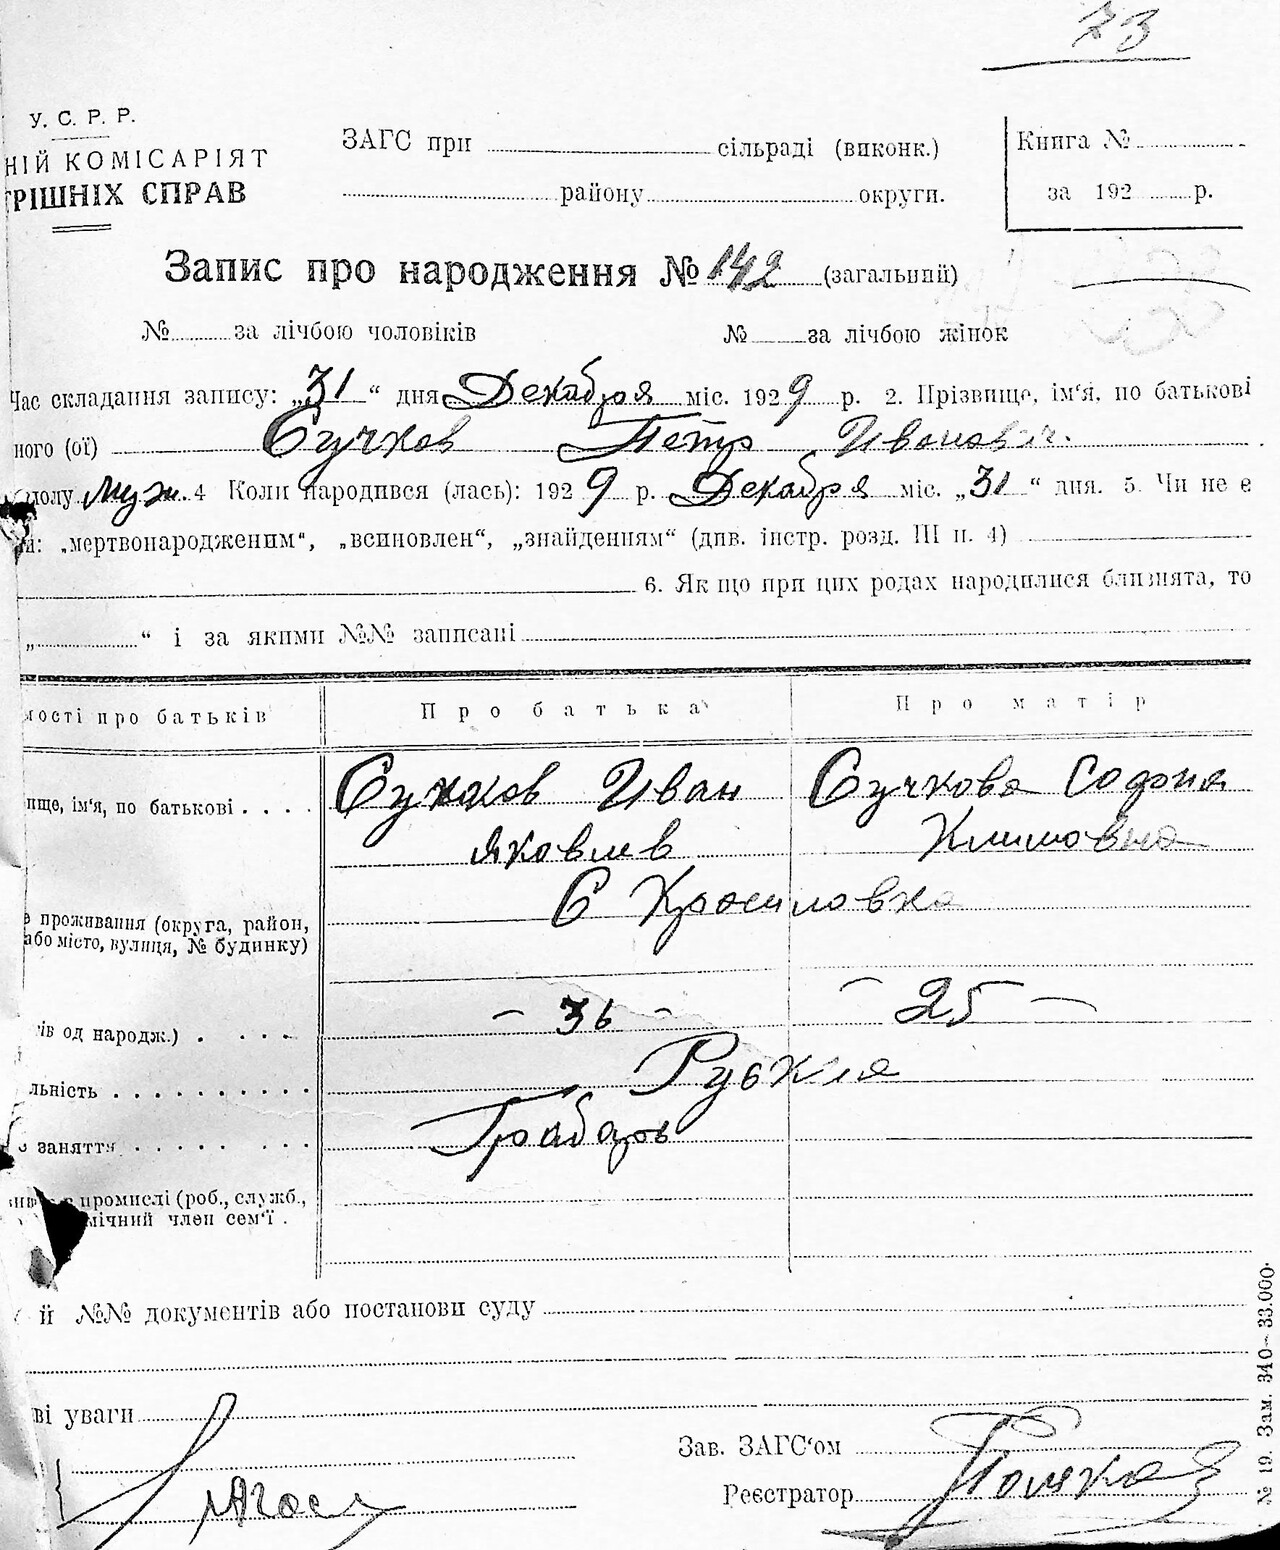 73
У. С. Р. Р.
НІЙ КОМІСАРІЯТ
ТРІШНІХ СПРАВ
ЗАГС при сільраді (виконк.)
району округи.
Книга №
за 192 р.
Запис про народження № 142 (загальний)
№ за лічбою чоловіків № за лічбою жінок
Час складання запису: „31“ дня Декабря міс. 1929 р. 2. Прізвище, ім'я, по батькові
ного (ої) Сучков Петр Иванович.
полу муж. 4 Коли народився (лась): 1929 р. Декабря міс. „31“ дня. 5. Чи не є
„мертвонародженим“, „всиновлен“, „знайденням“ (див. інстр. розд. III п. 4)
6. Якщо при цих родах народилися близнята, то
„ “ і за якими №№ записані
мості про батьків Про батька Про матір
ище, ім'я, по батькові . . . . Сучков Иван Сучкова София
Яковлев Климовна
е проживання (округа, район, С Красиловка
або місто, вулиця, № будинку)
ків од народж.) . . . . - 36 - - 25 -
льність . . . . . . . . . . Руская
заняття . . . . . . . . Грабарь
промислі (роб., служб.,
мічний член сем'ї .
й №№ документів або постанови суду
ві уваги
Зав. ЗАГС'ом
Реєстратор
№ 19. Зам. 340—33.000.